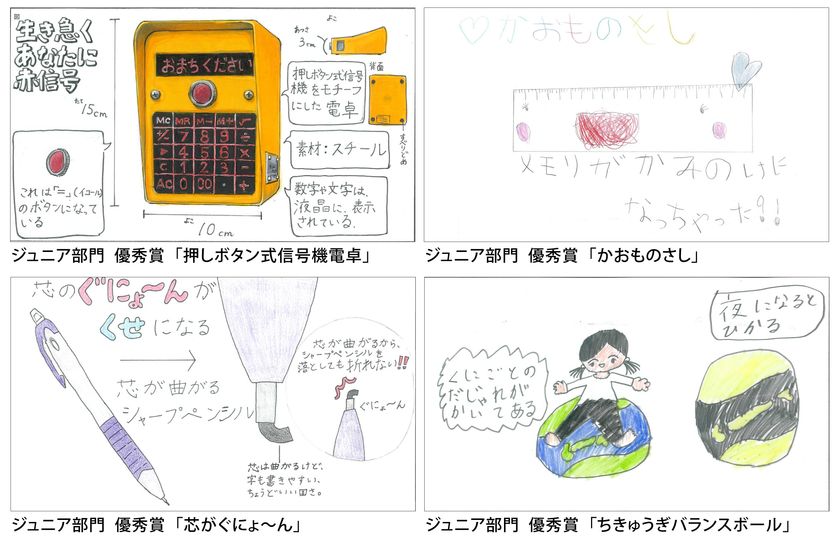 生き急ぐ
あなたに
赤信号
たて
15cm
これは「=」(イコール)
のボタンになって
いる
おまちください
MC MR M− M+ √
+/− 7 8 9 ÷
▶ 4 5 6 ×
C 1 2 3 −
AC 0 00 ・ +
よこ
10cm
よこ
あつさ
3cm
押しボタン式信号
機をモチーフ
にした 電卓
背面
すべりどめ
素材:スチール
数字や文字は、
液晶に、表示
されている。
ジュニア部門 優秀賞 「押しボタン式信号機電卓」
♡かおものさし
メモリがかみのけに
なっちゃった!!
ジュニア部門 優秀賞 「かおものさし」
芯のぐにょ〜んが
くせになる
芯が曲がる
シャープペンシル
芯が曲がるから、
シャープペンシルを
落としても折れない!!
ぐにょ〜ん
芯は曲がるけど、
字も書きやすい、
ちょうどいい固さ。
ジュニア部門 優秀賞 「芯がぐにょ〜ん」
くにごとの
だじゃれが
かいてある
夜になると
ひかる
ジュニア部門 優秀賞 「ちきゅうぎバランスボール」